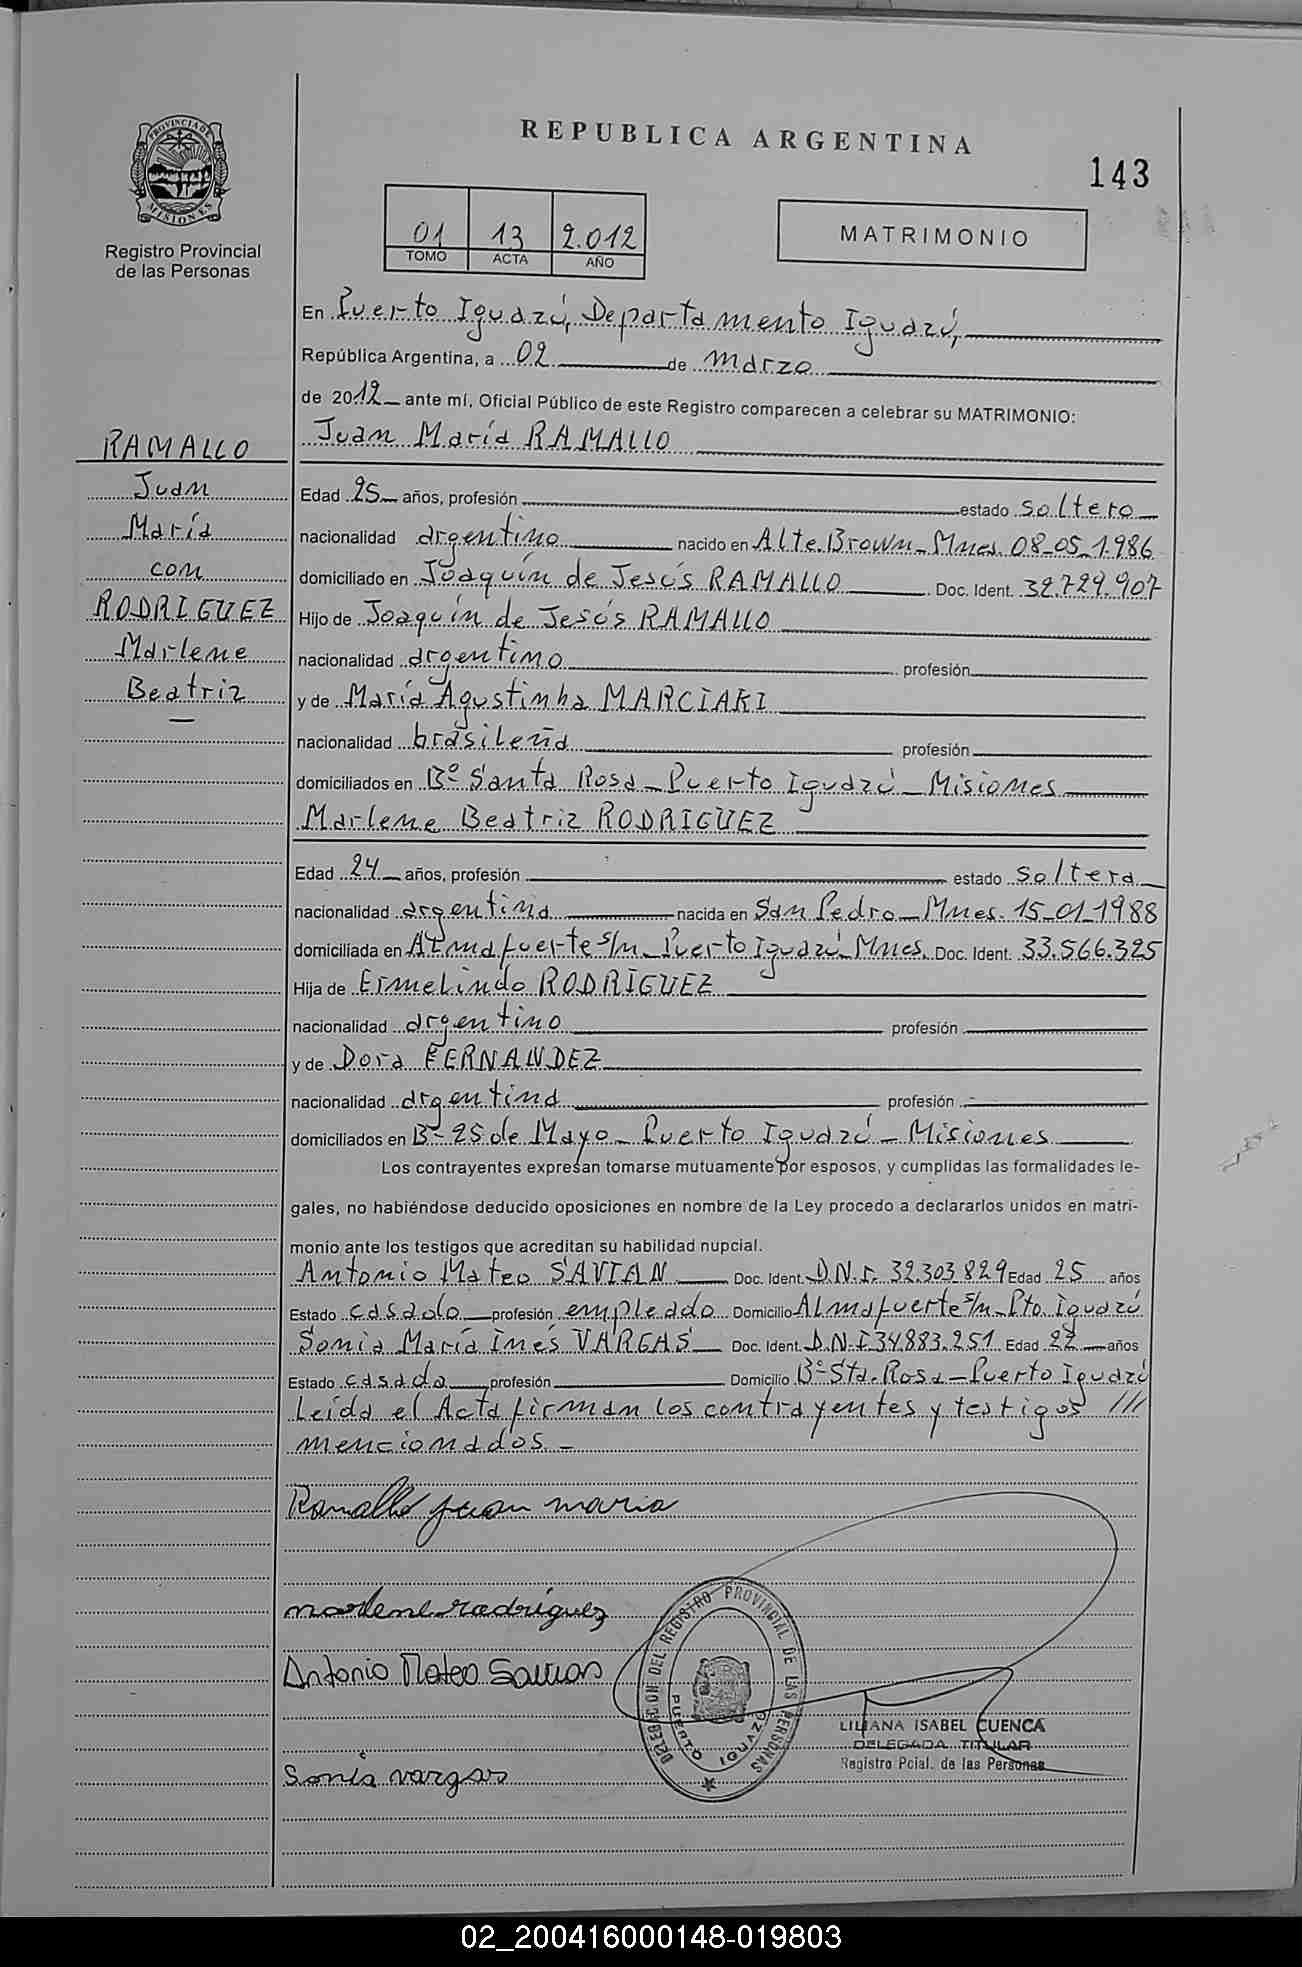 REPUBLICA ARGENTINA
143
PROVINCIA DE MISIONES
Registro Provincial
de las Personas
01 13 2.012
TOMO ACTA AÑO
MATRIMONIO
En Puerto Iguazú, Departamento Iguazú,
República Argentina, a 02 de marzo
de 2012 ante mí, Oficial Público de este Registro comparecen a celebrar su MATRIMONIO:
Juan María RAMALLO
RAMALLO
Juan
María
con
RODRIGUEZ
Marlene
Beatriz
Edad 25 años, profesión estado soltero
nacionalidad argentino nacido en Alte. Brown - Mnes. 08-05-1.986
domiciliado en Joaquín de Jesús RAMALLO Doc. Ident. 32.729.907
Hijo de Joaquín de Jesús RAMALLO
nacionalidad argentino profesión
y de María Agustinha MARCIAKI
nacionalidad brasileña profesión
domiciliados en Bº Santa Rosa - Puerto Iguazú - Misiones
Marlene Beatriz RODRIGUEZ
Edad 24 años, profesión estado soltera
nacionalidad argentina nacida en San Pedro - Mnes. 15-01-1988
domiciliada en Almafuerte s/n - Puerto Iguazú - Mnes. Doc. Ident. 33.566.325
Hija de Ermelindo RODRIGUEZ
nacionalidad argentino profesión
y de Dora FERNANDEZ
nacionalidad argentina profesión
domiciliados en Bº 25 de Mayo - Puerto Iguazú - Misiones
Los contrayentes expresan tomarse mutuamente por esposos, y cumplidas las formalidades le-
gales, no habiéndose deducido oposiciones en nombre de la Ley procedo a declararlos unidos en matri-
monio ante los testigos que acreditan su habilidad nupcial.
Antonio Mateo SAVIAN Doc. Ident. D.N.I. 32.303.829 Edad 25 años
Estado casado profesión empleado Domicilio Almafuerte s/n - Pto. Iguazú
Sonia María Inés VARGAS Doc. Ident. D.N.I 34.883.251 Edad 22 años
Estado casada profesión Domicilio Bº Sta. Rosa - Puerto Iguazú
Leída el Acta firman los contrayentes y testigos ///
mencionados. -
Ramallo juan maria
marlene rodríguez
Antonio Mateo Savian
Sonia vargas
DELEGACION DEL REGISTRO PROVINCIAL DE LAS PERSONAS
PUERTO IGUAZÚ
LILIANA ISABEL CUENCA
DELEGADA TITULAR
Registro Pcial. de las Personas
02_200416000148-019803